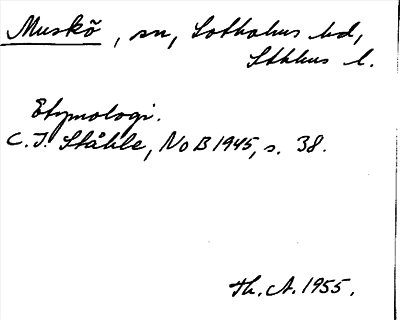 Muskö, sn, Sotholms hd,
Sthlms l.
Etymologi.
C. I. Ståhle, NoB 1945, s. 38.
Th. A. 1955.